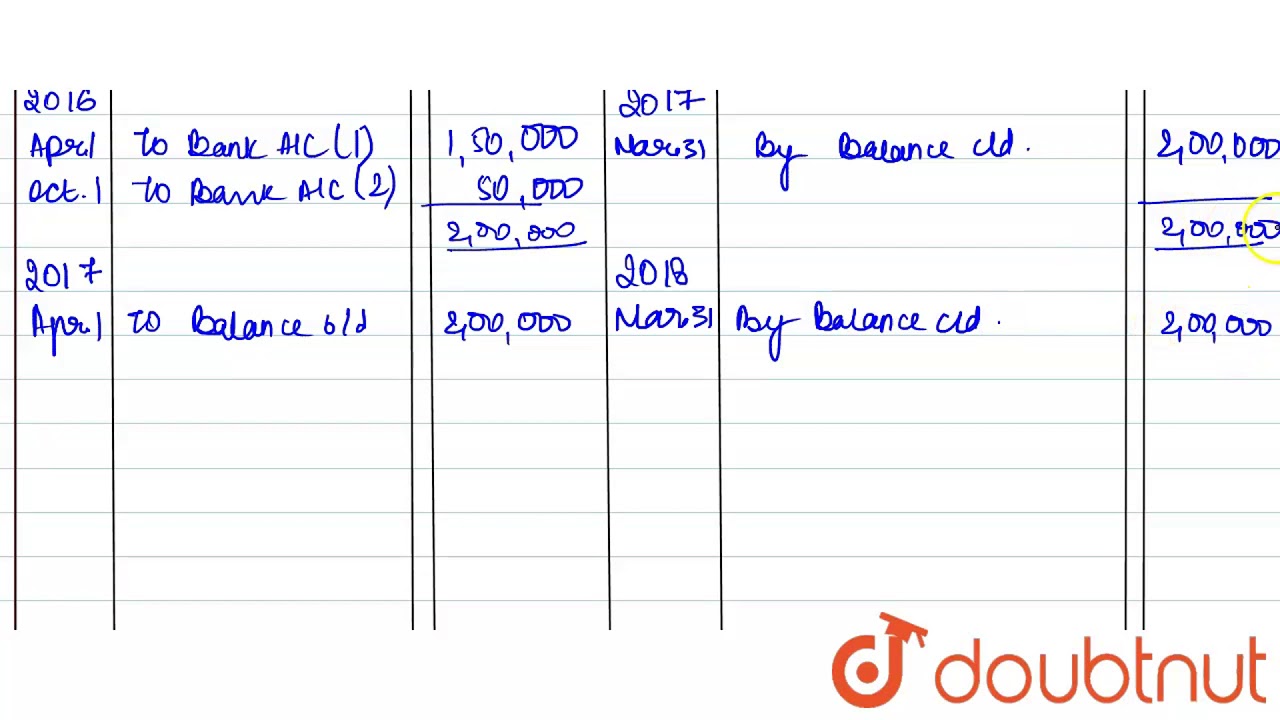 2016 2017
April 1 To Bank A/C (1) 1,50,000 Mar.31 By Balance c/d. 2,00,000
Oct. 1 To Bank A/C (2) 50,000
2,00,000 2,00,000
2017 2018
April 1 To Balance b/d 2,00,000 Mar.31 By Balance c/d. 2,00,000
doubtnut